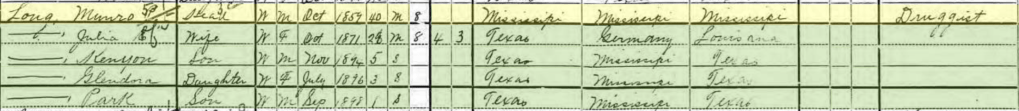 Long, Munro Head W M Oct 1859 40 M 8 Mississipi Mississipi Mississipi Druggist
—, Julia Wife W F Oct 1871 28 M 8 4 3 Texas Germany Louisana
—, Kenyon Son W M Nov 1894 5 S Texas Mississipi Texas
—, Glendora Daughter W F July 1896 3 S Texas Mississipi Texas
—, Park Son W M Sep 1898 1 S Texas Mississipi Texas